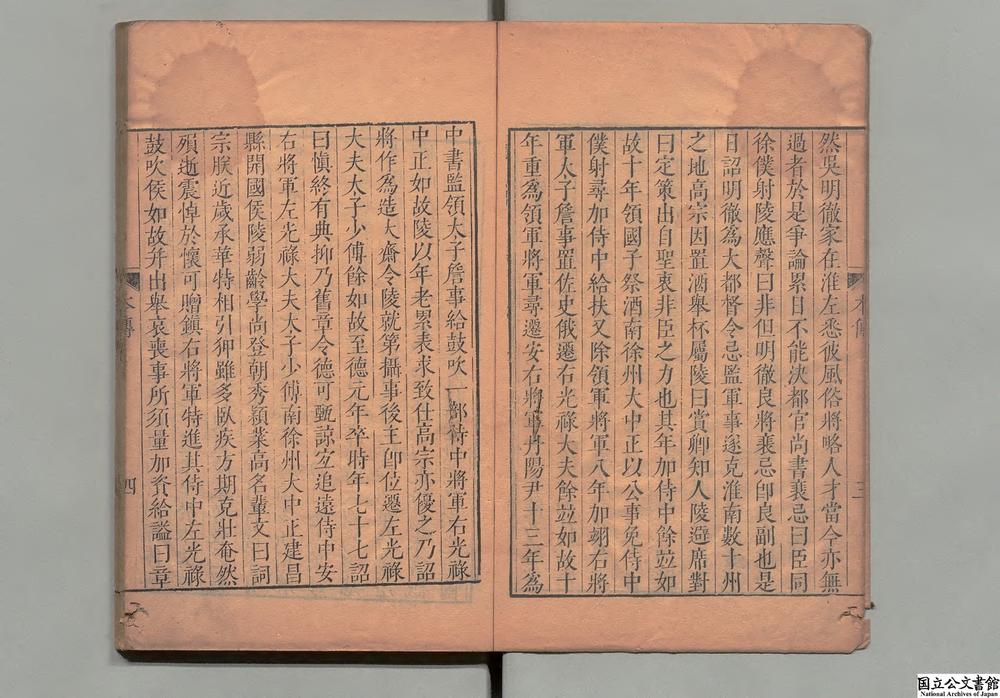 然吳明徹家在淮左悉彼風俗將略人才當今亦無
過者於是爭論累日不能決都官尚書裵忌曰臣同
徐僕射陵應聲曰非但明徹良將裵忌卽良副也是
日詔明徹爲大都督令忌監軍事遂克淮南數十州
之地高宗因置酒舉杯屬陵曰賞卿知人陵避席對
曰定策出自聖衷非臣之力也其年加侍中餘竝如
故十年領國子祭酒南徐州大中正以公事免侍中
僕射尋加侍中給扶又除領軍將軍八年加翊右將
軍太子詹事置佐史俄遷右光祿大夫餘竝如故十
年重爲領軍將軍尋遷安右將軍丹陽尹十三年爲
本傳
三
中書監領太子詹事給鼓吹一部侍中將軍右光祿
中正如故陵以年老累表求致仕高宗亦優之乃詔
將作爲造大齋令陵就第攝事後主卽位遷左光祿
大夫太子少傅餘如故至德元年卒時年七十七詔
曰愼終有典抑乃舊章令德可甄諒宜追遠侍中安
右將軍左光祿大夫太子少傅南徐州大中正建昌
縣開國侯陵弱齡學尚登朝秀穎業高名輩文曰詞
宗朕近歲承華特相引狎雖多臥疾方期克壯奄然
殞逝震悼於懷可贈鎭右將軍特進其侍中左光祿
鼓吹侯如故幷出舉哀喪事所須量加資給諡曰章
本傳
四
国立公文書館
National Archives of Japan